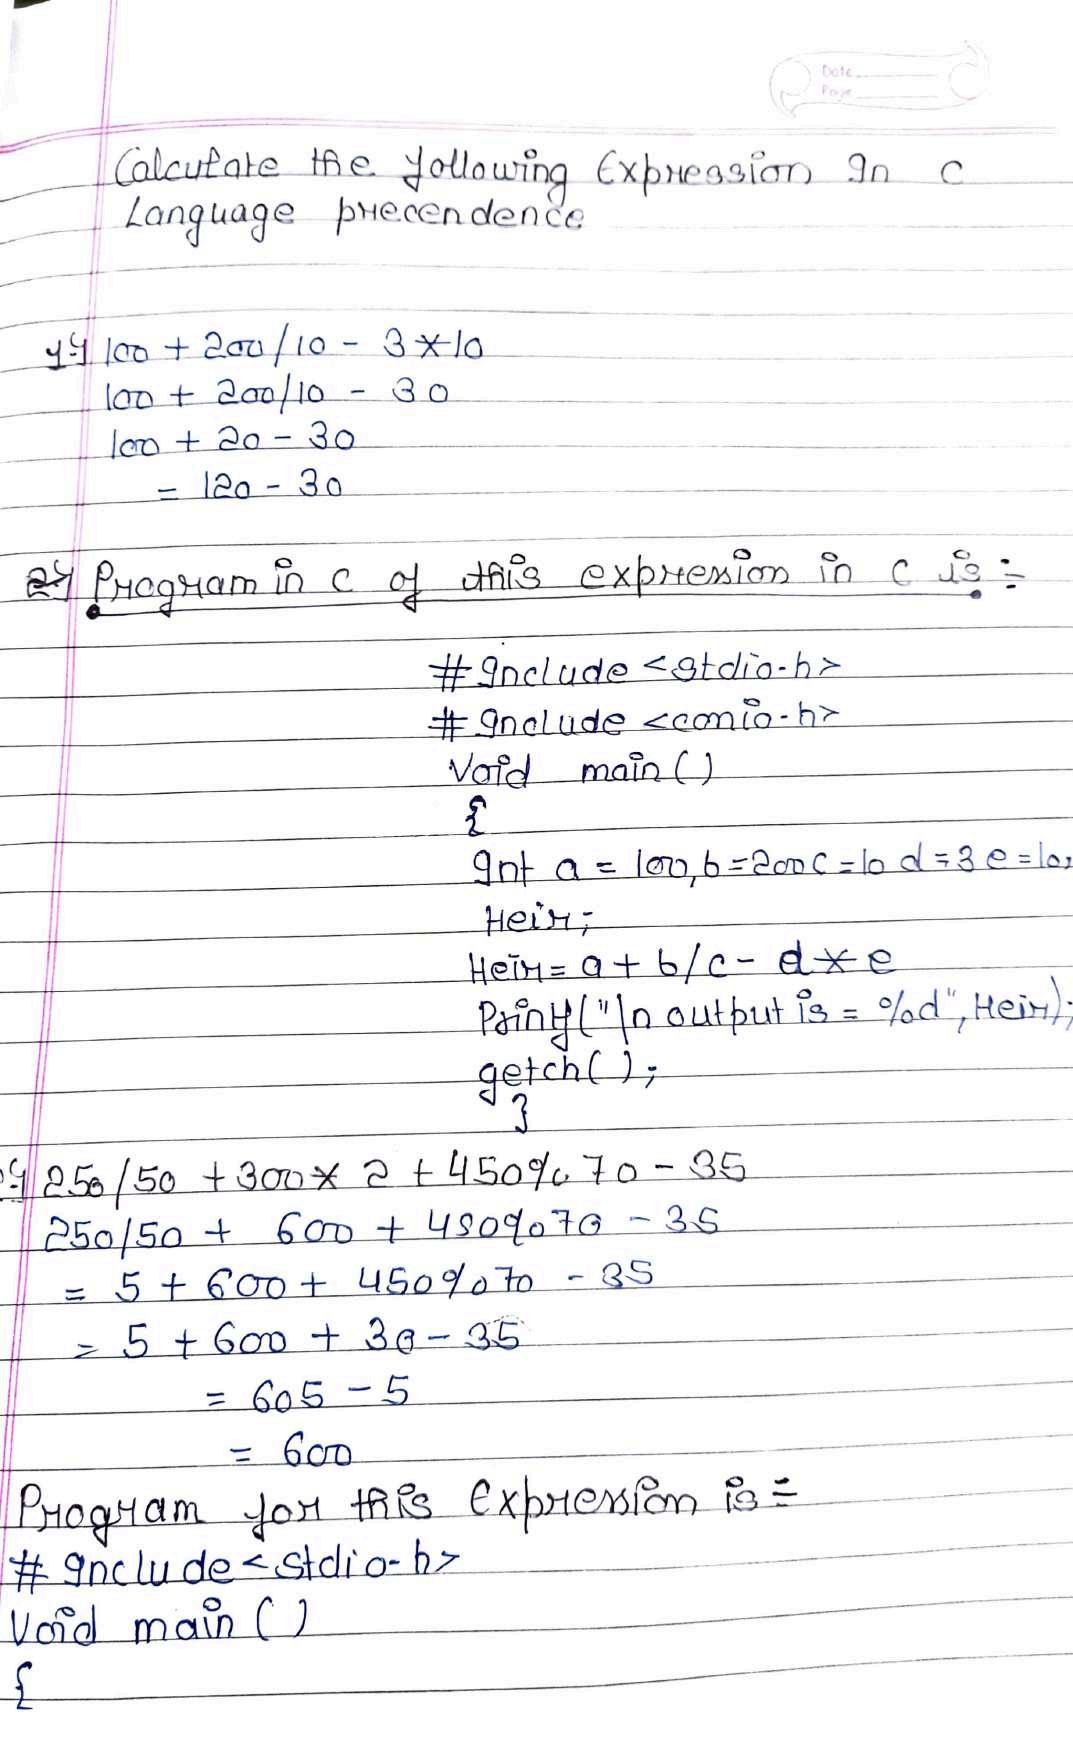 Date
Page
Calculate the following Expression In C
Language precendence
1) 100 + 200/10 - 3*10
100 + 200/10 - 30
100 + 20 - 30
= 120 - 30
2) Program in C of this expression in C is :-
# Include <stdio.h>
# Include <conio.h>
Void main ()
{
Int a = 100, b=200 c=10 d=3 e=10,
Heir;
Heir = a + b/c - d*e
Printf("\n output is = %d", Heir);
getch();
}
250/50 + 300* 2 + 450% 70 - 35
250/50 + 600 + 450%70 - 35
= 5 + 600 + 450%70 - 35
= 5 + 600 + 30 - 35
= 605 - 5
= 600
Program for this Expression is :-
# Include <stdio.h>
Void main ()
{